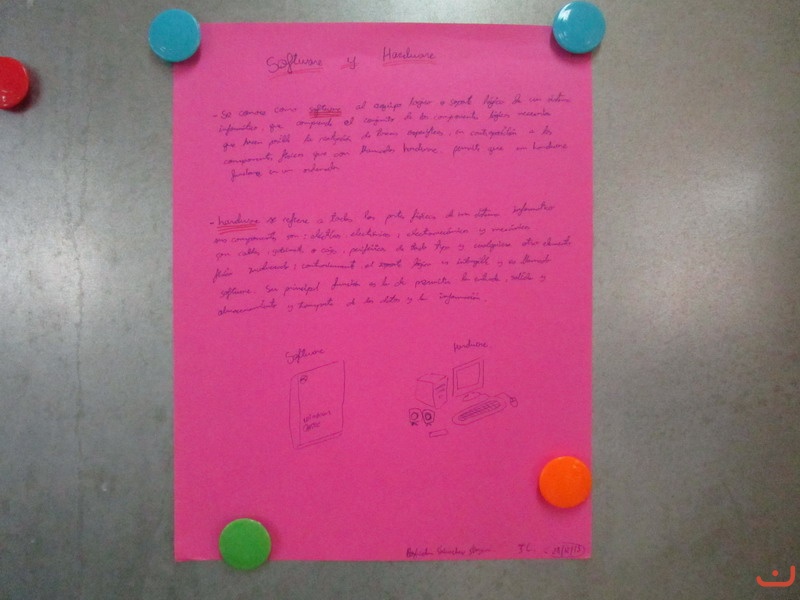 Software y Hardware
- Se conoce como software al equipo lógico o soporte lógico de un sistema
informático, que comprende el conjunto de los componentes lógicos necesarios
que hacen posible la realización de tareas específicas, en contraposición a los
componentes físicos que son llamados hardware. permite que un hardware
funcione en un ordenador
- hardware se refiere a todas las partes físicas de un sistema informático
sus componentes son: eléctricos electrónicos, electromecánicos y mecánicos
son cables, gabinete o caja, periféricos de todo tipo y cualquier otro elemento
físico involucrado; contrariamente al soporte lógico es intangible y es llamado
software. Sus principal función es la de permitir la entrada, salida y
almacenamiento y transporte de los datos y la información.
Software
Hardware
Windows